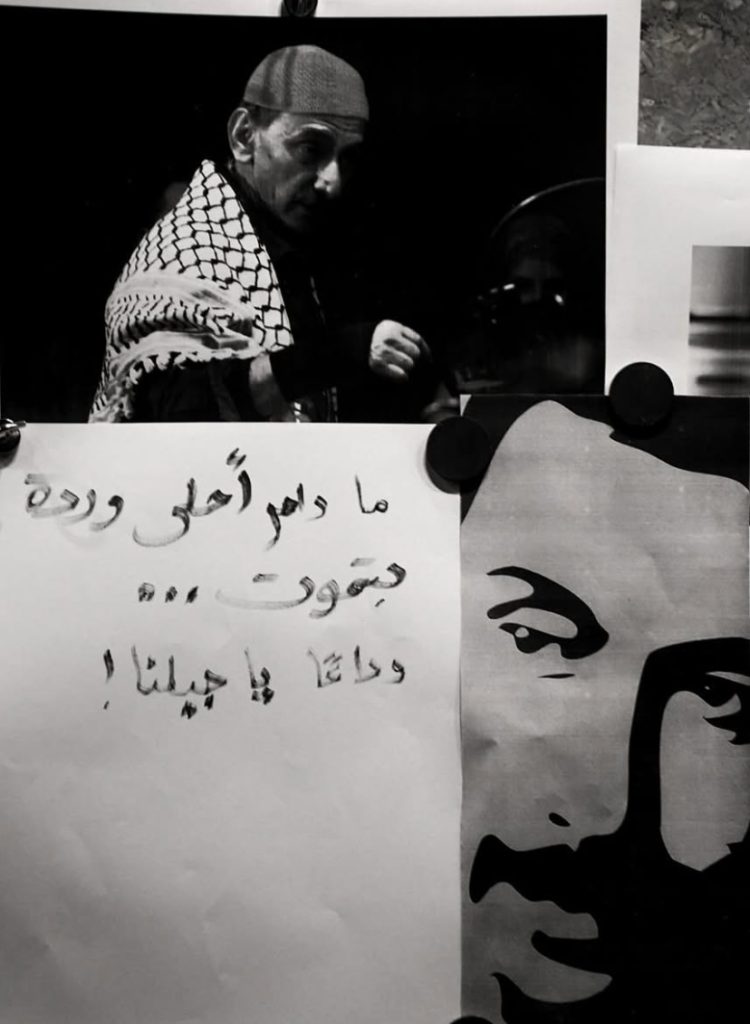 ما دامر أحلى وردة
بتموت ...
وداعًا يا جيلنا!